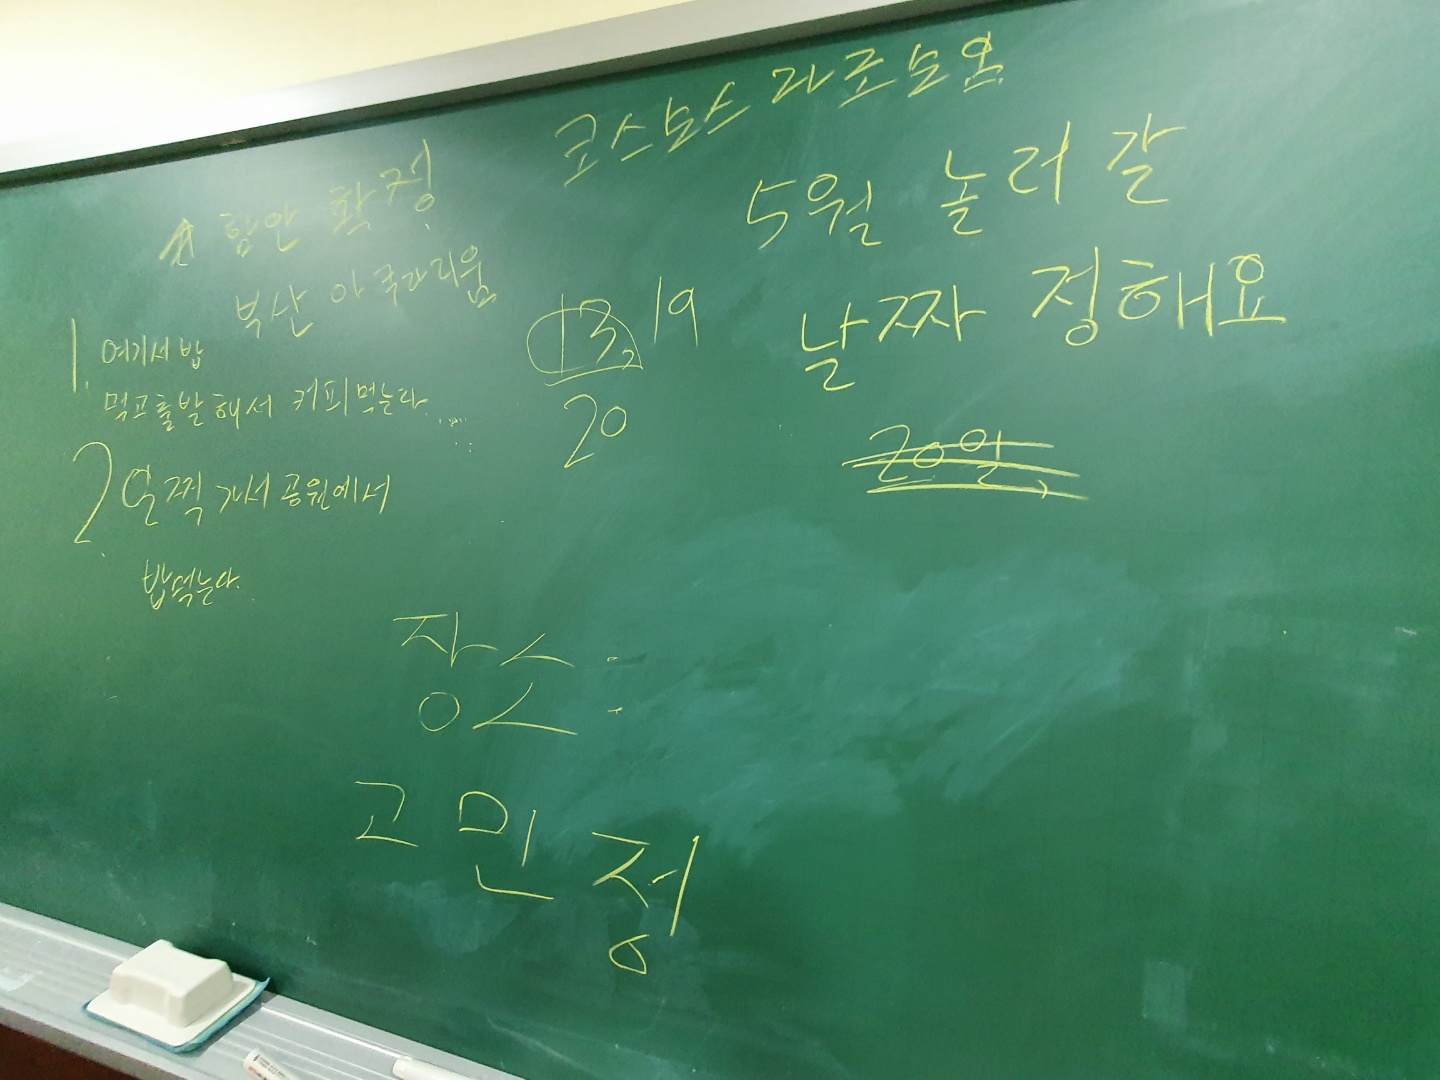 코스모스라조보옴
5월 놀러 갈
날짜 정해요
20일,
함안 확정
부산 아쿠라리움
13, 19
20
1. 여기서 밥
먹고 출발해서 커피 먹는다......
2. 일찍 가서 공원에서
밥먹는다.
장소 :
고민정